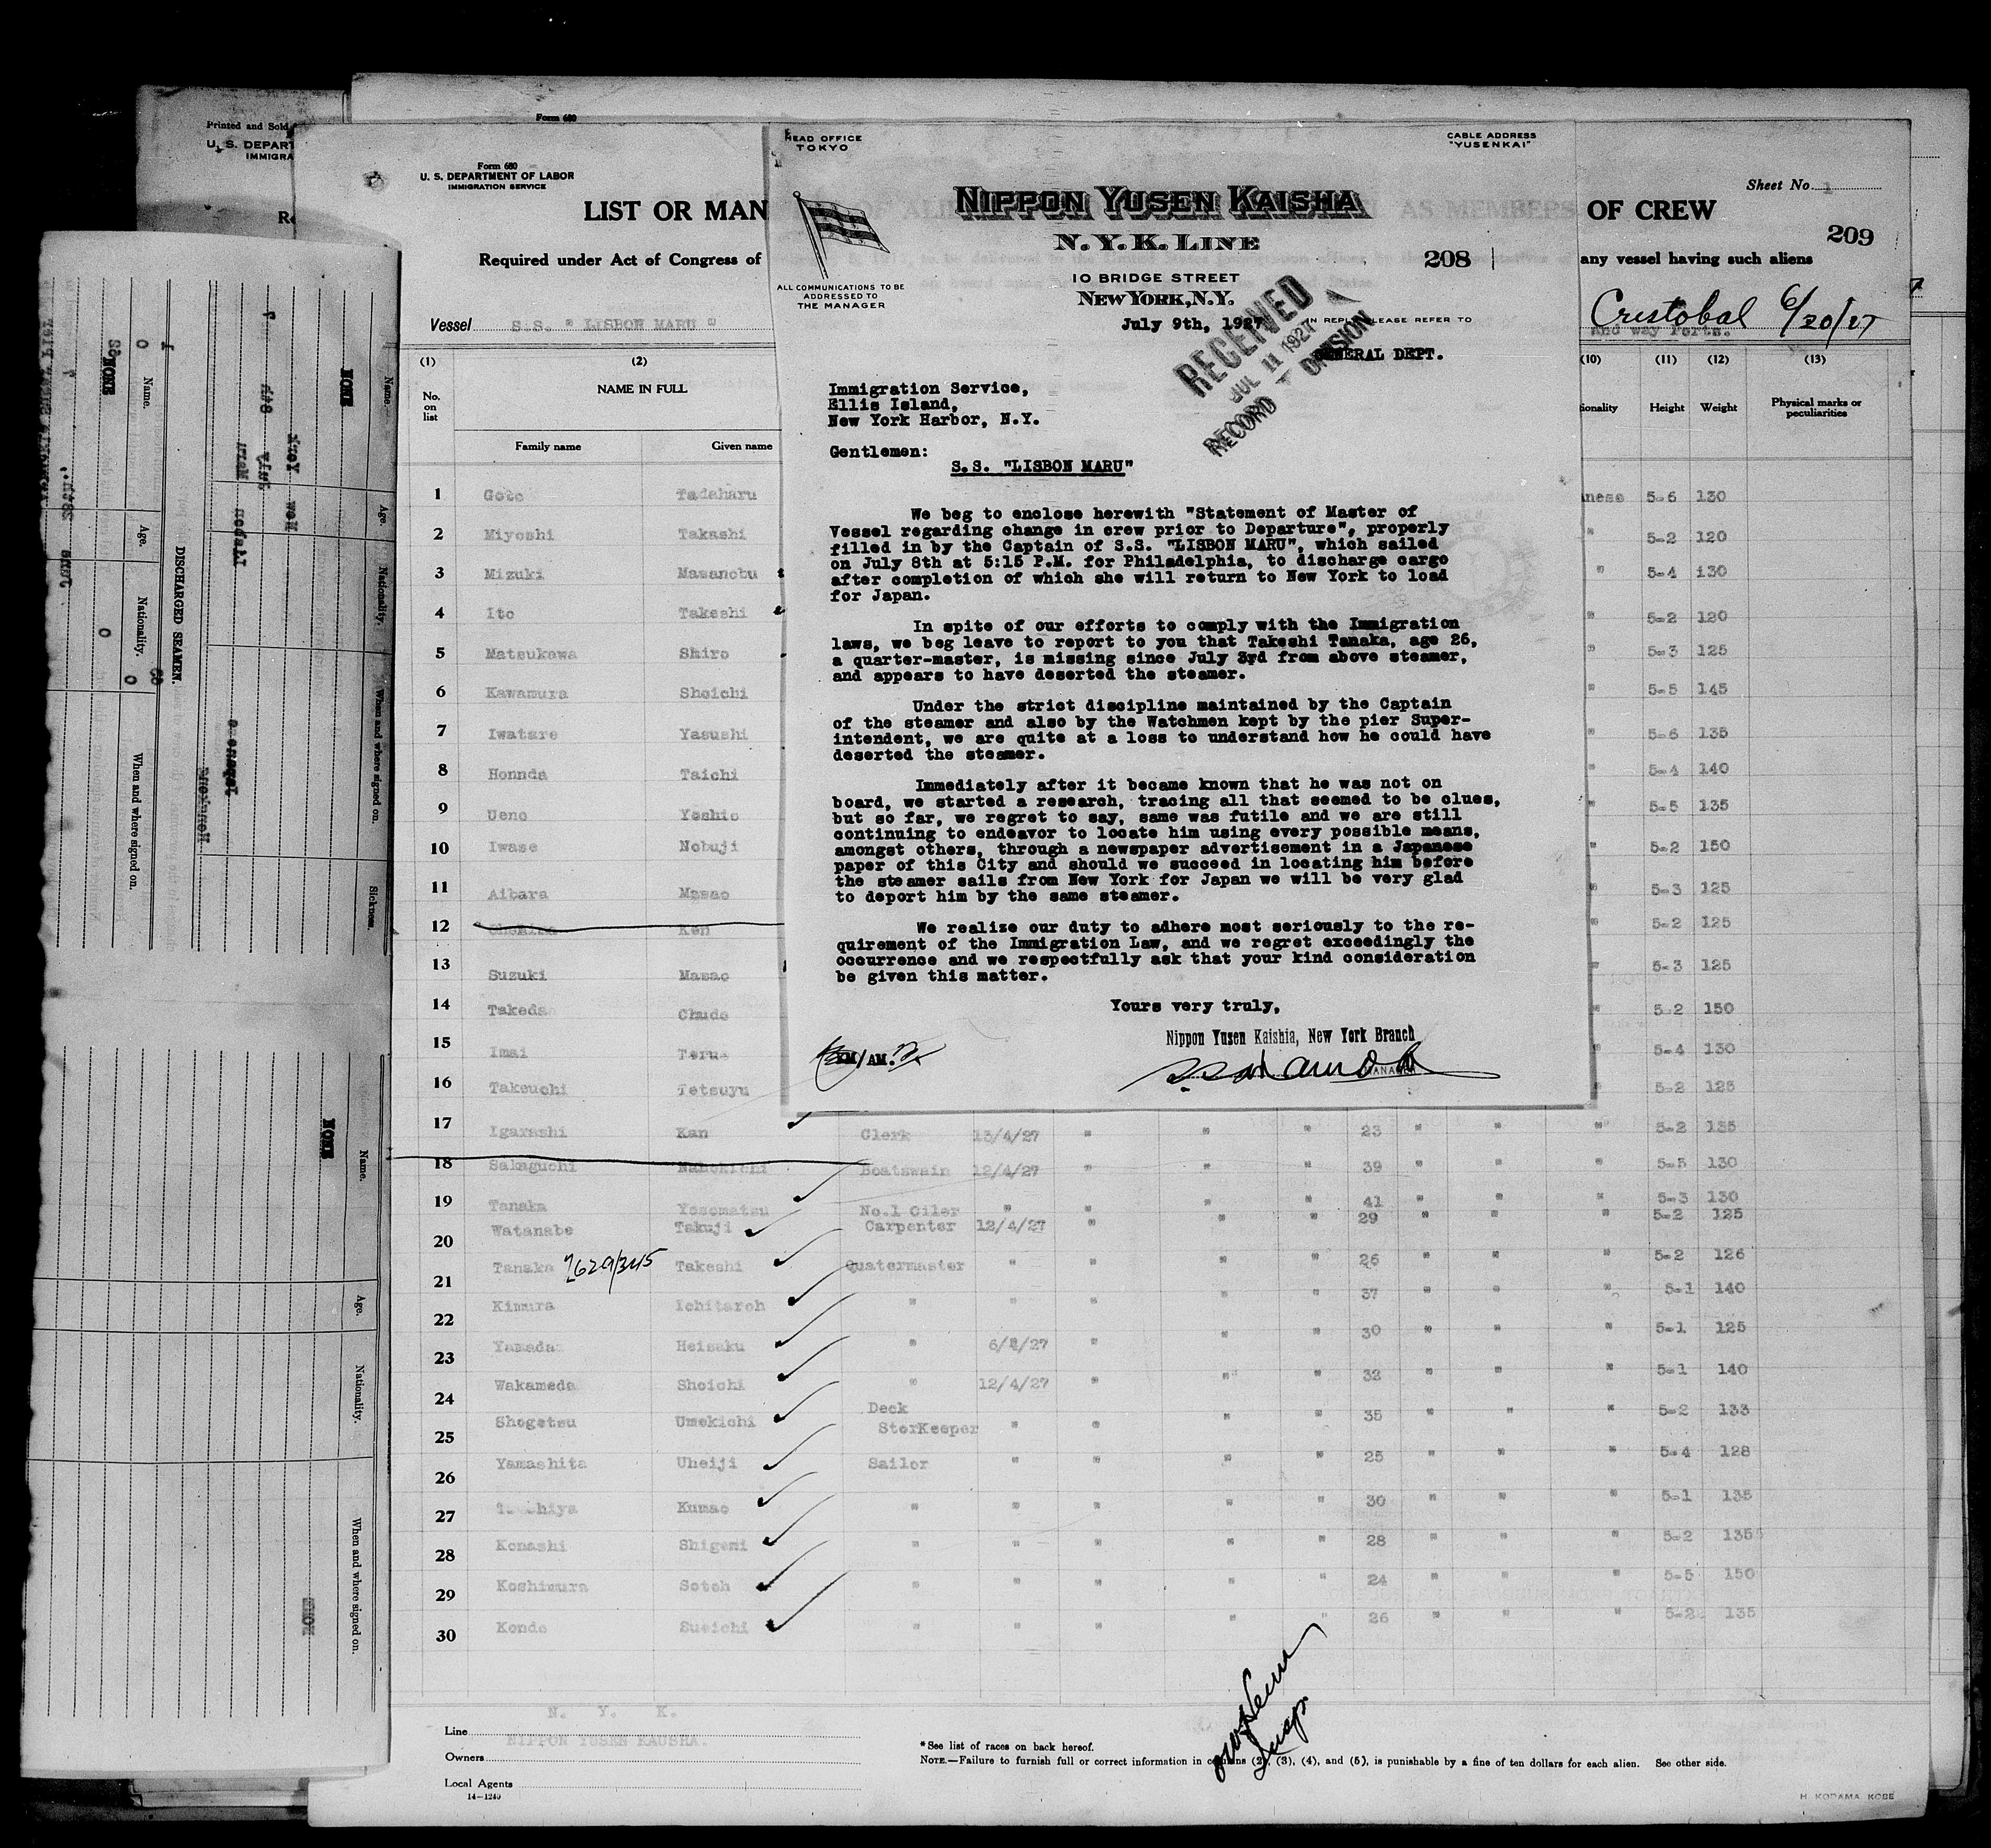 Printed and Sold
U. S. DEPART
IMMIGRA
Form 680
Form 680
U. S. DEPARTMENT OF LABOR
IMMIGRATION SERVICE
LIST OR MAN
OF CREW
Sheet No. 1
209
Required under Act of Congress of
any vessel having such aliens
Vessel S.S. " LISBON MARU "
Cristobal 6/20/27
and way Ports.
HEAD OFFICE
TOKYO
CABLE ADDRESS
"YUSENKAI"
NIPPON YUSEN KAISHA
N. Y. K. LINE
208
10 BRIDGE STREET
NEW YORK, N.Y.
ALL COMMUNICATIONS TO BE
ADDRESSED TO
THE MANAGER
July 9th, 1927
IN REPLY PLEASE REFER TO
GENERAL DEPT.
RECEIVED
JUL 11 1927
RECORD DIVISION
Immigration Service,
Ellis Island,
New York Harbor, N.Y.
Gentlemen:
S.S. "LISBON MARU"
We beg to enclose herewith "Statement of Master of
Vessel regarding change in crew prior to Departure", properly
filled in by the Captain of S.S. "LISBON MARU", which sailed
on July 8th at 5:15 P.M. for Philadelphia, to discharge cargo
after completion of which she will return to New York to load
for Japan.
In spite of our efforts to comply with the Immigration
laws, we beg leave to report to you that Takeshi Tanaka, age 26,
a quarter-master, is missing since July 3rd from above steamer,
and appears to have deserted the steamer.
Under the strict discipline maintained by the Captain
of the steamer and also by the Watchmen kept by the pier Super-
intendent, we are quite at a loss to understand how he could have
deserted the steamer.
Immediately after it became known that he was not on
board, we started a research, tracing all that seemed to be clues,
but so far, we regret to say, same was futile and we are still
continuing to endeavor to locate him using every possible means,
amongst others, through a newspaper advertisement in a Japanese
paper of this City and should we succeed in locating him before
the steamer sails from New York for Japan we will be very glad
to deport him by the same steamer.
We realize our duty to adhere most seriously to the re-
quirement of the Immigration Law, and we regret exceedingly the
occurrence and we respectfully ask that your kind consideration
be given this matter.
Yours very truly,
Nippon Yusen Kaishia, New York Branch
MANAGER
/AM.
(1) (2) (10) (11) (12) (13)
No. on list NAME IN FULL ionality Height Weight Physical marks or peculiarities
Family name Given name
1 Goto Tadaharu anese 5-6 130
2 Miyoshi Takashi " 5-2 120
3 Mizuki Masanobu " 5-4 130
4 Ito Takeshi " 5-2 120
5 Matsukawa Shiro " 5-3 125
6 Kawamura Shoichi " 5-5 145
7 Iwatare Yasushi " 5-6 135
8 Honnda Taichi " 5-4 140
9 Ueno Yoshio " 5-5 135
10 Iwase Nobuji " 5-2 150
11 Aibara Masao " 5-3 125
12 Ken " 5-2 125
13 Suzuki Masao " 5-3 125
14 Takeda Chudo " 5-2 150
15 Imai Teruo " 5-4 130
16 Takeuchi Tetsuyu " 5-2 125
17 Igarashi Kan Clerk 13/4/27 " " " 23 " " " 5-2 135
18 Sakaguchi Boatswain 12/4/27 " " " 39 " " " 5-5 130
19 Tanaka Yosomatsu No.1 Oiler " " " " 41 " " " 5-3 130
20 Watanabe Takuji Carpenter 12/4/27 " " " 29 " " " 5-2 125
21 Tanaka Takeshi Quatermaster " " " " 26 " " " 5-2 126
22 Kimura Ichitaroh " " " " " 37 " " " 5-1 140
23 Yamada Heisaku " 6/ /27 " " " 30 " " " 5-1 125
24 Wakameda Shoichi " 12/4/27 " " " 32 " " " 5-1 140
25 Shogetsu Umekichi Deck StorKeeper " " " " 35 " " " 5-2 133
26 Yamashita Uheiji Sailor " " " " 25 " " " 5-4 128
27 Kumao " " " " " 30 " " " 5-1 135
28 Konashi Shigemi " " " " " 28 " " " 5-2 135
29 Koshimura Sotoh " " " " " 24 " " " 5-5 150
30 Kondo Sueichi " " " " " 26 " " " 5-2 135
N. Y. K.
Line
NIPPON YUSEN KAUSHA.
Owners
Local Agents
14-1240
* See list of races on back hereof.
NOTE.—Failure to furnish full or correct information in columns (2), (3), (4), and (5), is punishable by a fine of ten dollars for each alien. See other side.
Insp
H KODAMA KOBE
Name. Age. Nationality. When and where signed on. Sickness.
NONE
New York
Japanese
DISCHARGED SEAMEN.
Name. Age. Nationality. When and where signed on.
NONE
Name. Age. Nationality. When and where signed on.
NONE